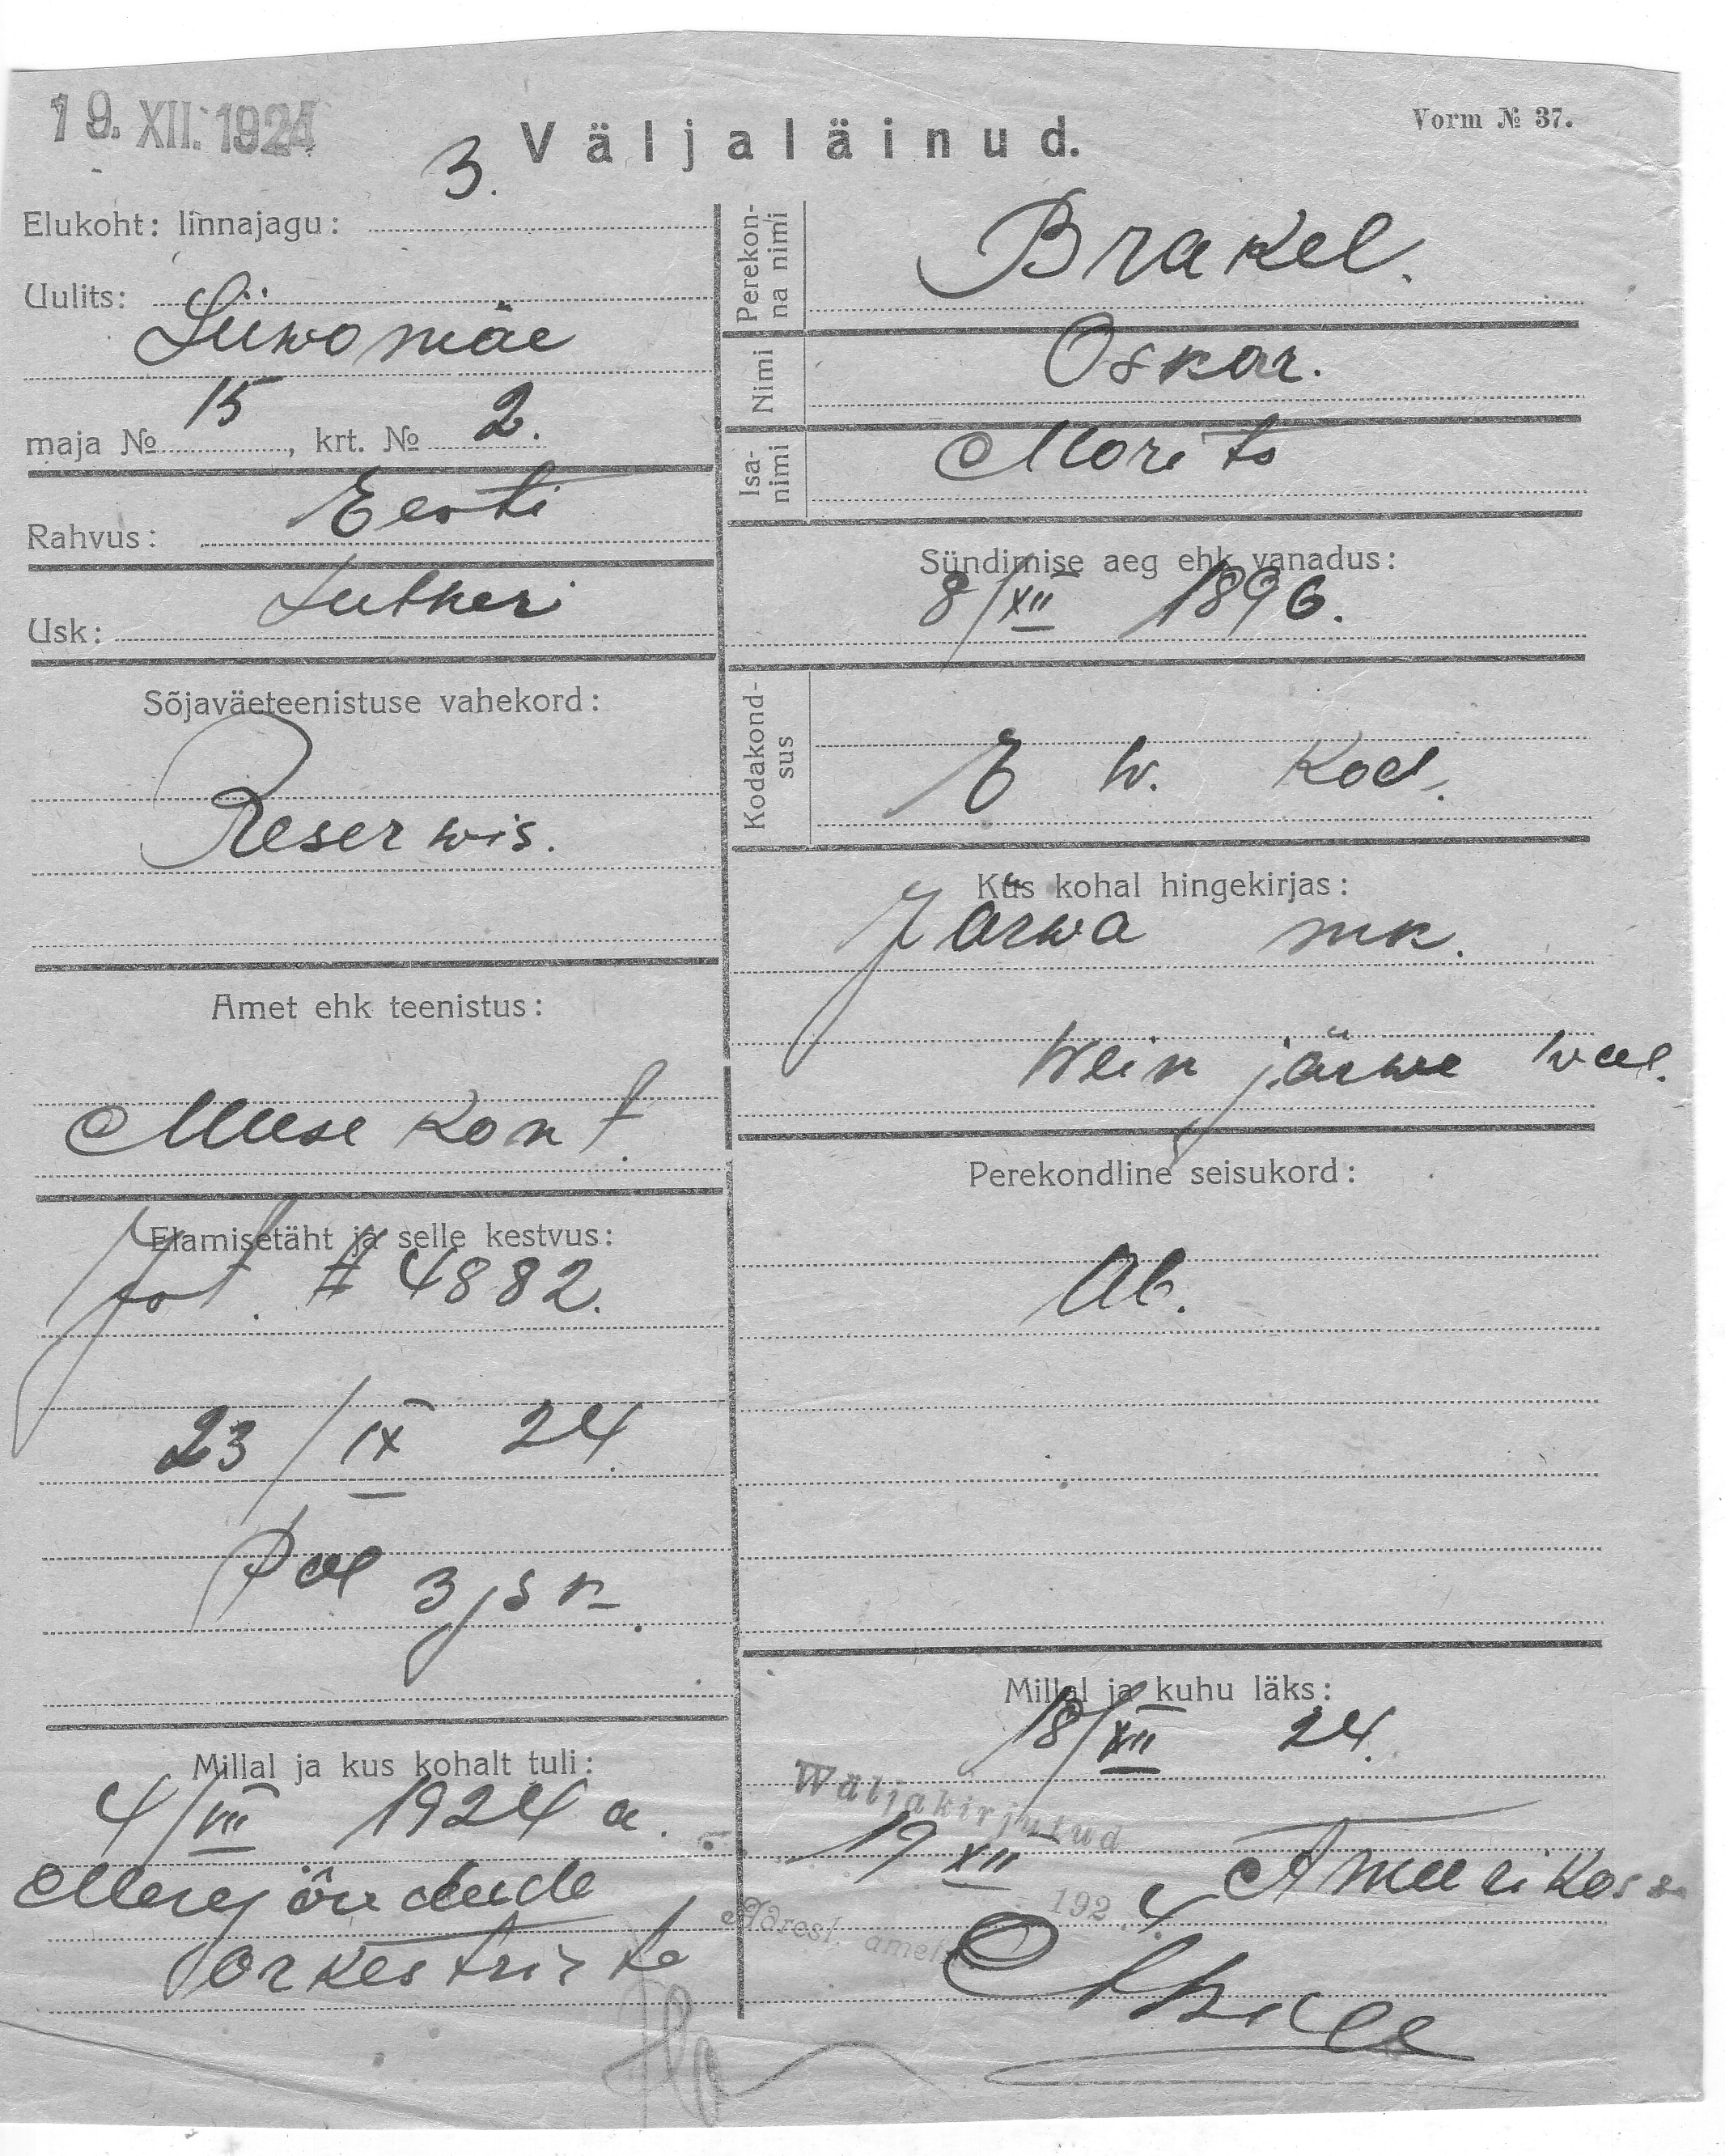 19. XII. 1924
Vorm № 37.
3. Väljaläinud.
Elukoht: linnajagu:
Uulits:
Liiwamäe
maja № 15, krt. № 2.
Rahvus: Eesti
Usk: Lutheri
Sõjaväeteenistuse vahekord:
Reserwis.
Amet ehk teenistus:
Musekant.
Elamisetäht ja selle kestvus:
# 4882.
23/IX 24
Pol 3 jsk.
Millal ja kus kohalt tuli:
4/VII 1924 a.
Merejõudude
orkestrist
Perekonna nimi
Brakel.
Nimi
Oskar.
Isanimi
Morits
Sündimise aeg ehk vanadus:
8/XII 1896.
Kodakondsus
E w. Kod.
Kus kohal hingekirjas:
Järwa mk.
Wein järwe wal.
Perekondline seisukord:
Ab.
Millal ja kuhu läks:
18/XII 24.
Wäljakirjutud
19 XII 1924
Ameerikasse
Adresl. amet